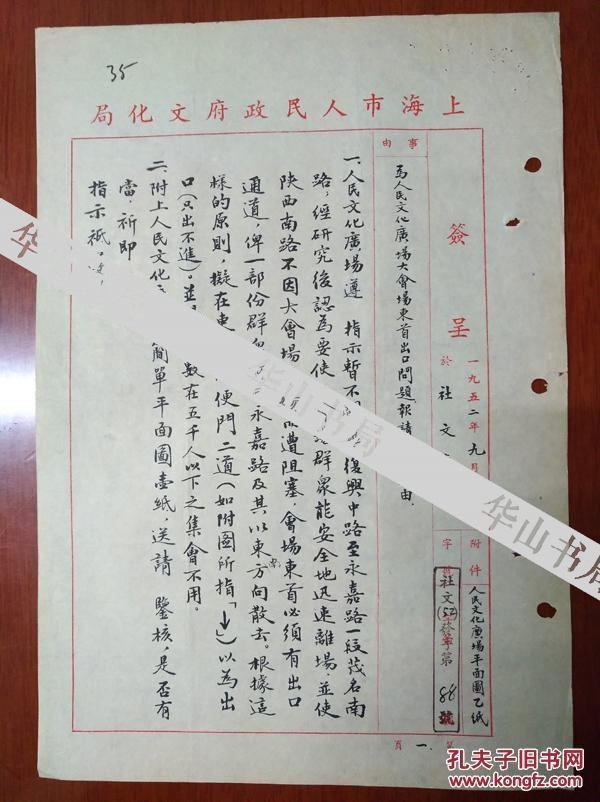 35
局化文府政民人市海上
簽呈
一九五二年九月
於社文
附件
人民文化廣場平面圖乙紙
字
社文(52)發字第88號
事由
為人民文化廣場大會場東首出口問題報請
由.
一、人民文化廣場遵 指示暫不
復興中路至永嘉路一段茂名南
路，經研究後認為要使
群眾能安全地迅速離場，並使
陝西南路不因大會場
而遭阻塞，會場東首必須有出口
通道，俾一部份群眾
永嘉路及其以東方向散去。根據這
樣的原則，擬在東
便門二道(如附圖所指「↓」)以為出
口(只出不進)。並
數在五千人以下之集會不用。
二、附上人民文化
簡單平面圖壹紙，送請 鑒核，是否有
當，祈即
指示祗
頁一
华山书局
华山书局
华山书局
华山书局
孔夫子旧书网
www.kongfz.com